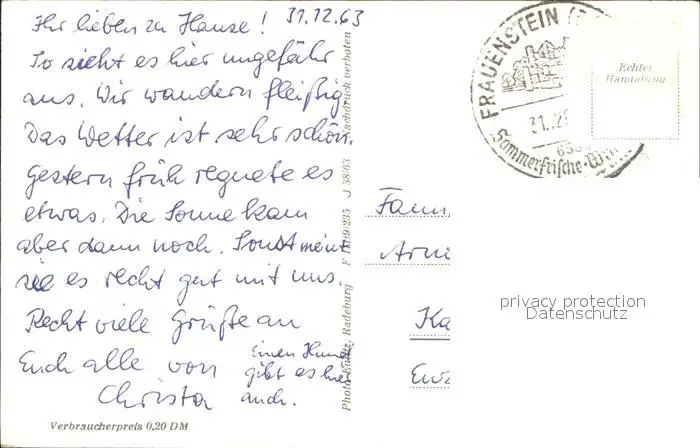 Ihr lieben zu Hause! 31.12.63
So sieht es hier ungefähr
aus. Wir wandern fleißig.
Das Wetter ist sehr schön.
Gestern früh regnete es
etwas. Die Sonne kam
aber dann noch. Sonst meint
sie es recht gut mit uns.
Recht viele Grüße an
Euch alle von
Christa
Einen Hund
gibt es hier
auch.
Verbraucherpreis 0,20 DM
Photo-Kunitz, Radeburg F 1119/235 J 38/63 Nachdruck verboten
FRAUENSTEIN
31.12
Sommerfrische
Echter
Handabzug
Fam
privacy protection
Datenschutz